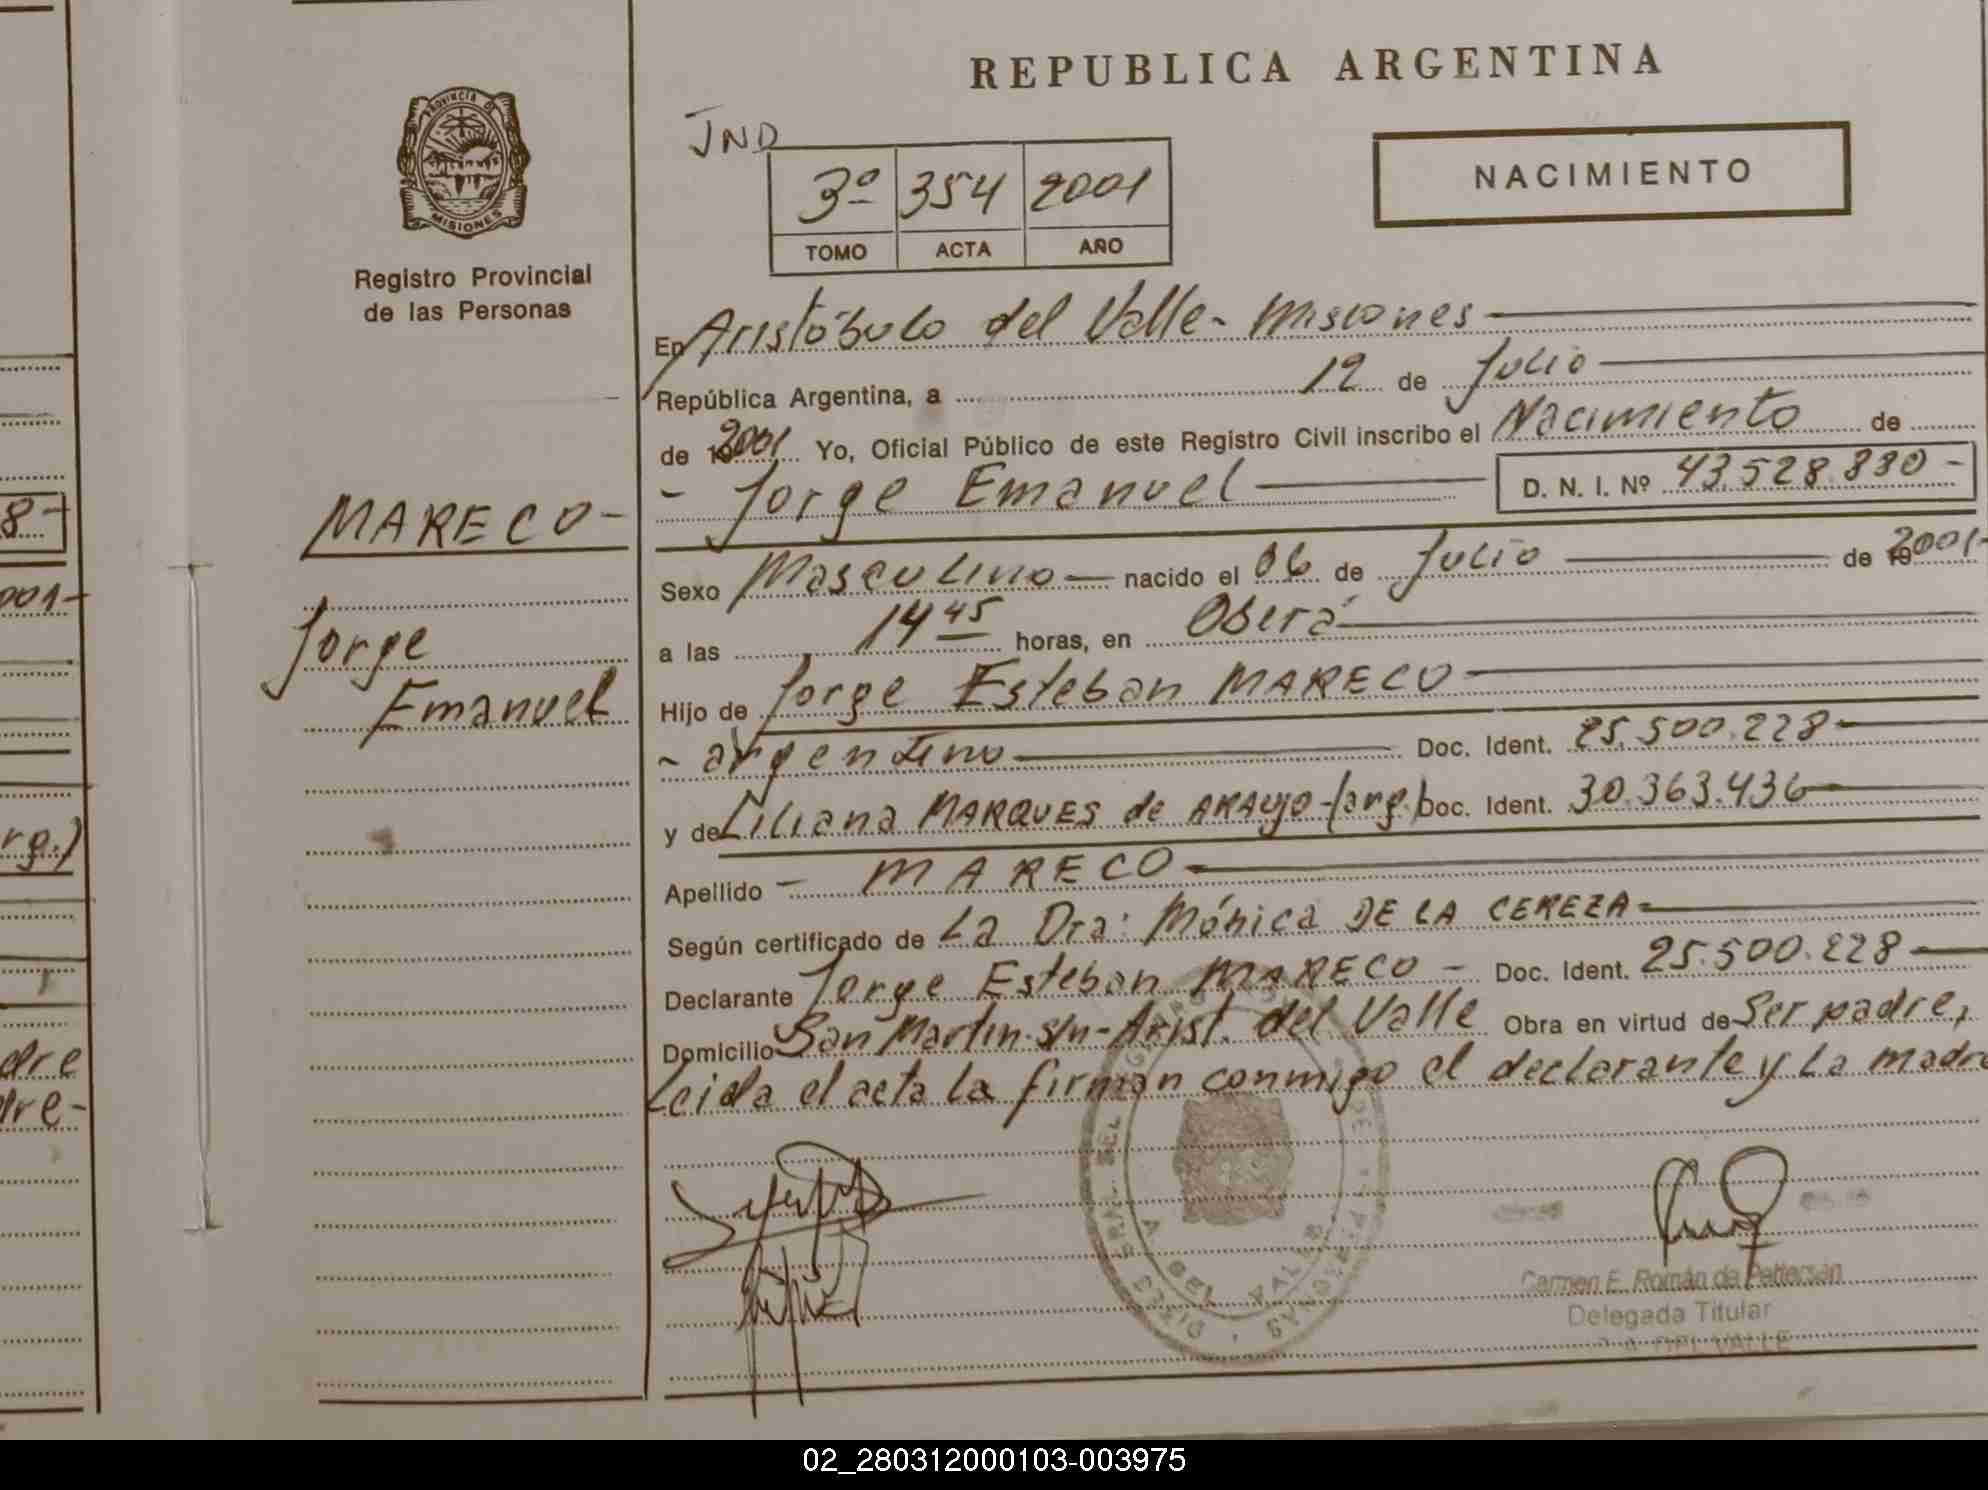 REPUBLICA ARGENTINA
PROVINCIA DE
MISIONES
Registro Provincial
de las Personas
JND
NACIMIENTO
3º 354 2001
TOMO ACTA AÑO
En Aristóbulo del Valle - Misiones
República Argentina, a 12 de Julio
de 19 2001 Yo, Oficial Público de este Registro Civil inscribo el Nacimiento de
- Jorge Emanuel D. N. I. Nº 43.528.830 -
MARECO -
Jorge
Emanuel
Sexo Masculino nacido el 06 de Julio de 19 2001-
a las 14 45 horas, en Oberá
Hijo de Jorge Esteban MARECO
- argentino Doc. Ident. 25.500.228-
y de Liliana MARQUES de ARAUJO - (arg.) Doc. Ident. 30.363.436
Apellido - MARECO
Según certificado de La Dra: Mónica DE LA CEREZA
Declarante Jorge Esteban MARECO - Doc. Ident. 25.500.228
Domicilio San Martín s/n - Arist. del Valle Obra en virtud de Ser padre,
Leida el acta La firman conmigo el declarante y La madre
Carmen E. Román de Pettersen
Delegada Titular
A. DEL VALLE
8-
001-
rg.)
dre
dre-
02_280312000103-003975